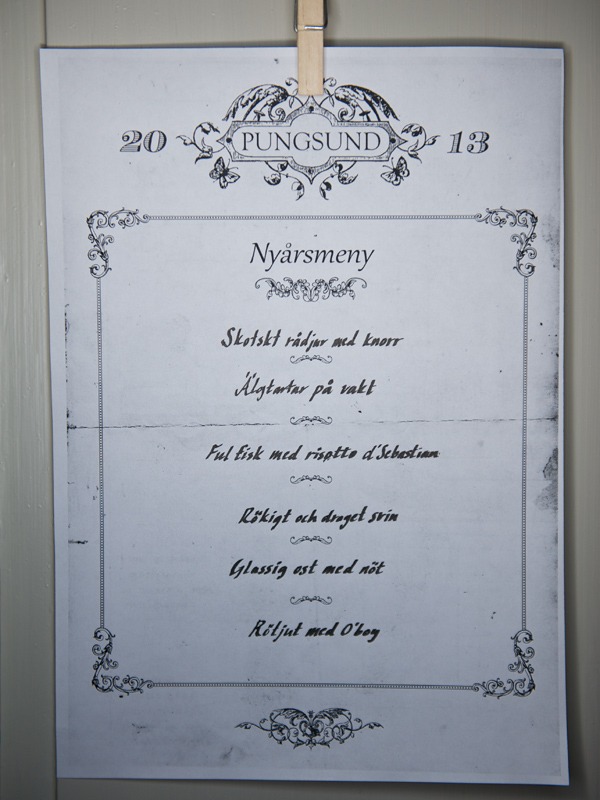 20 PUNGSUND 13
Nyårsmeny
Skotskt rådjur med knorr
Älgtartar på vakt
Ful fisk med risotto d'Sebastian
Rökigt och draget svin
Glassig ost med nöt
Röljut med O'boy